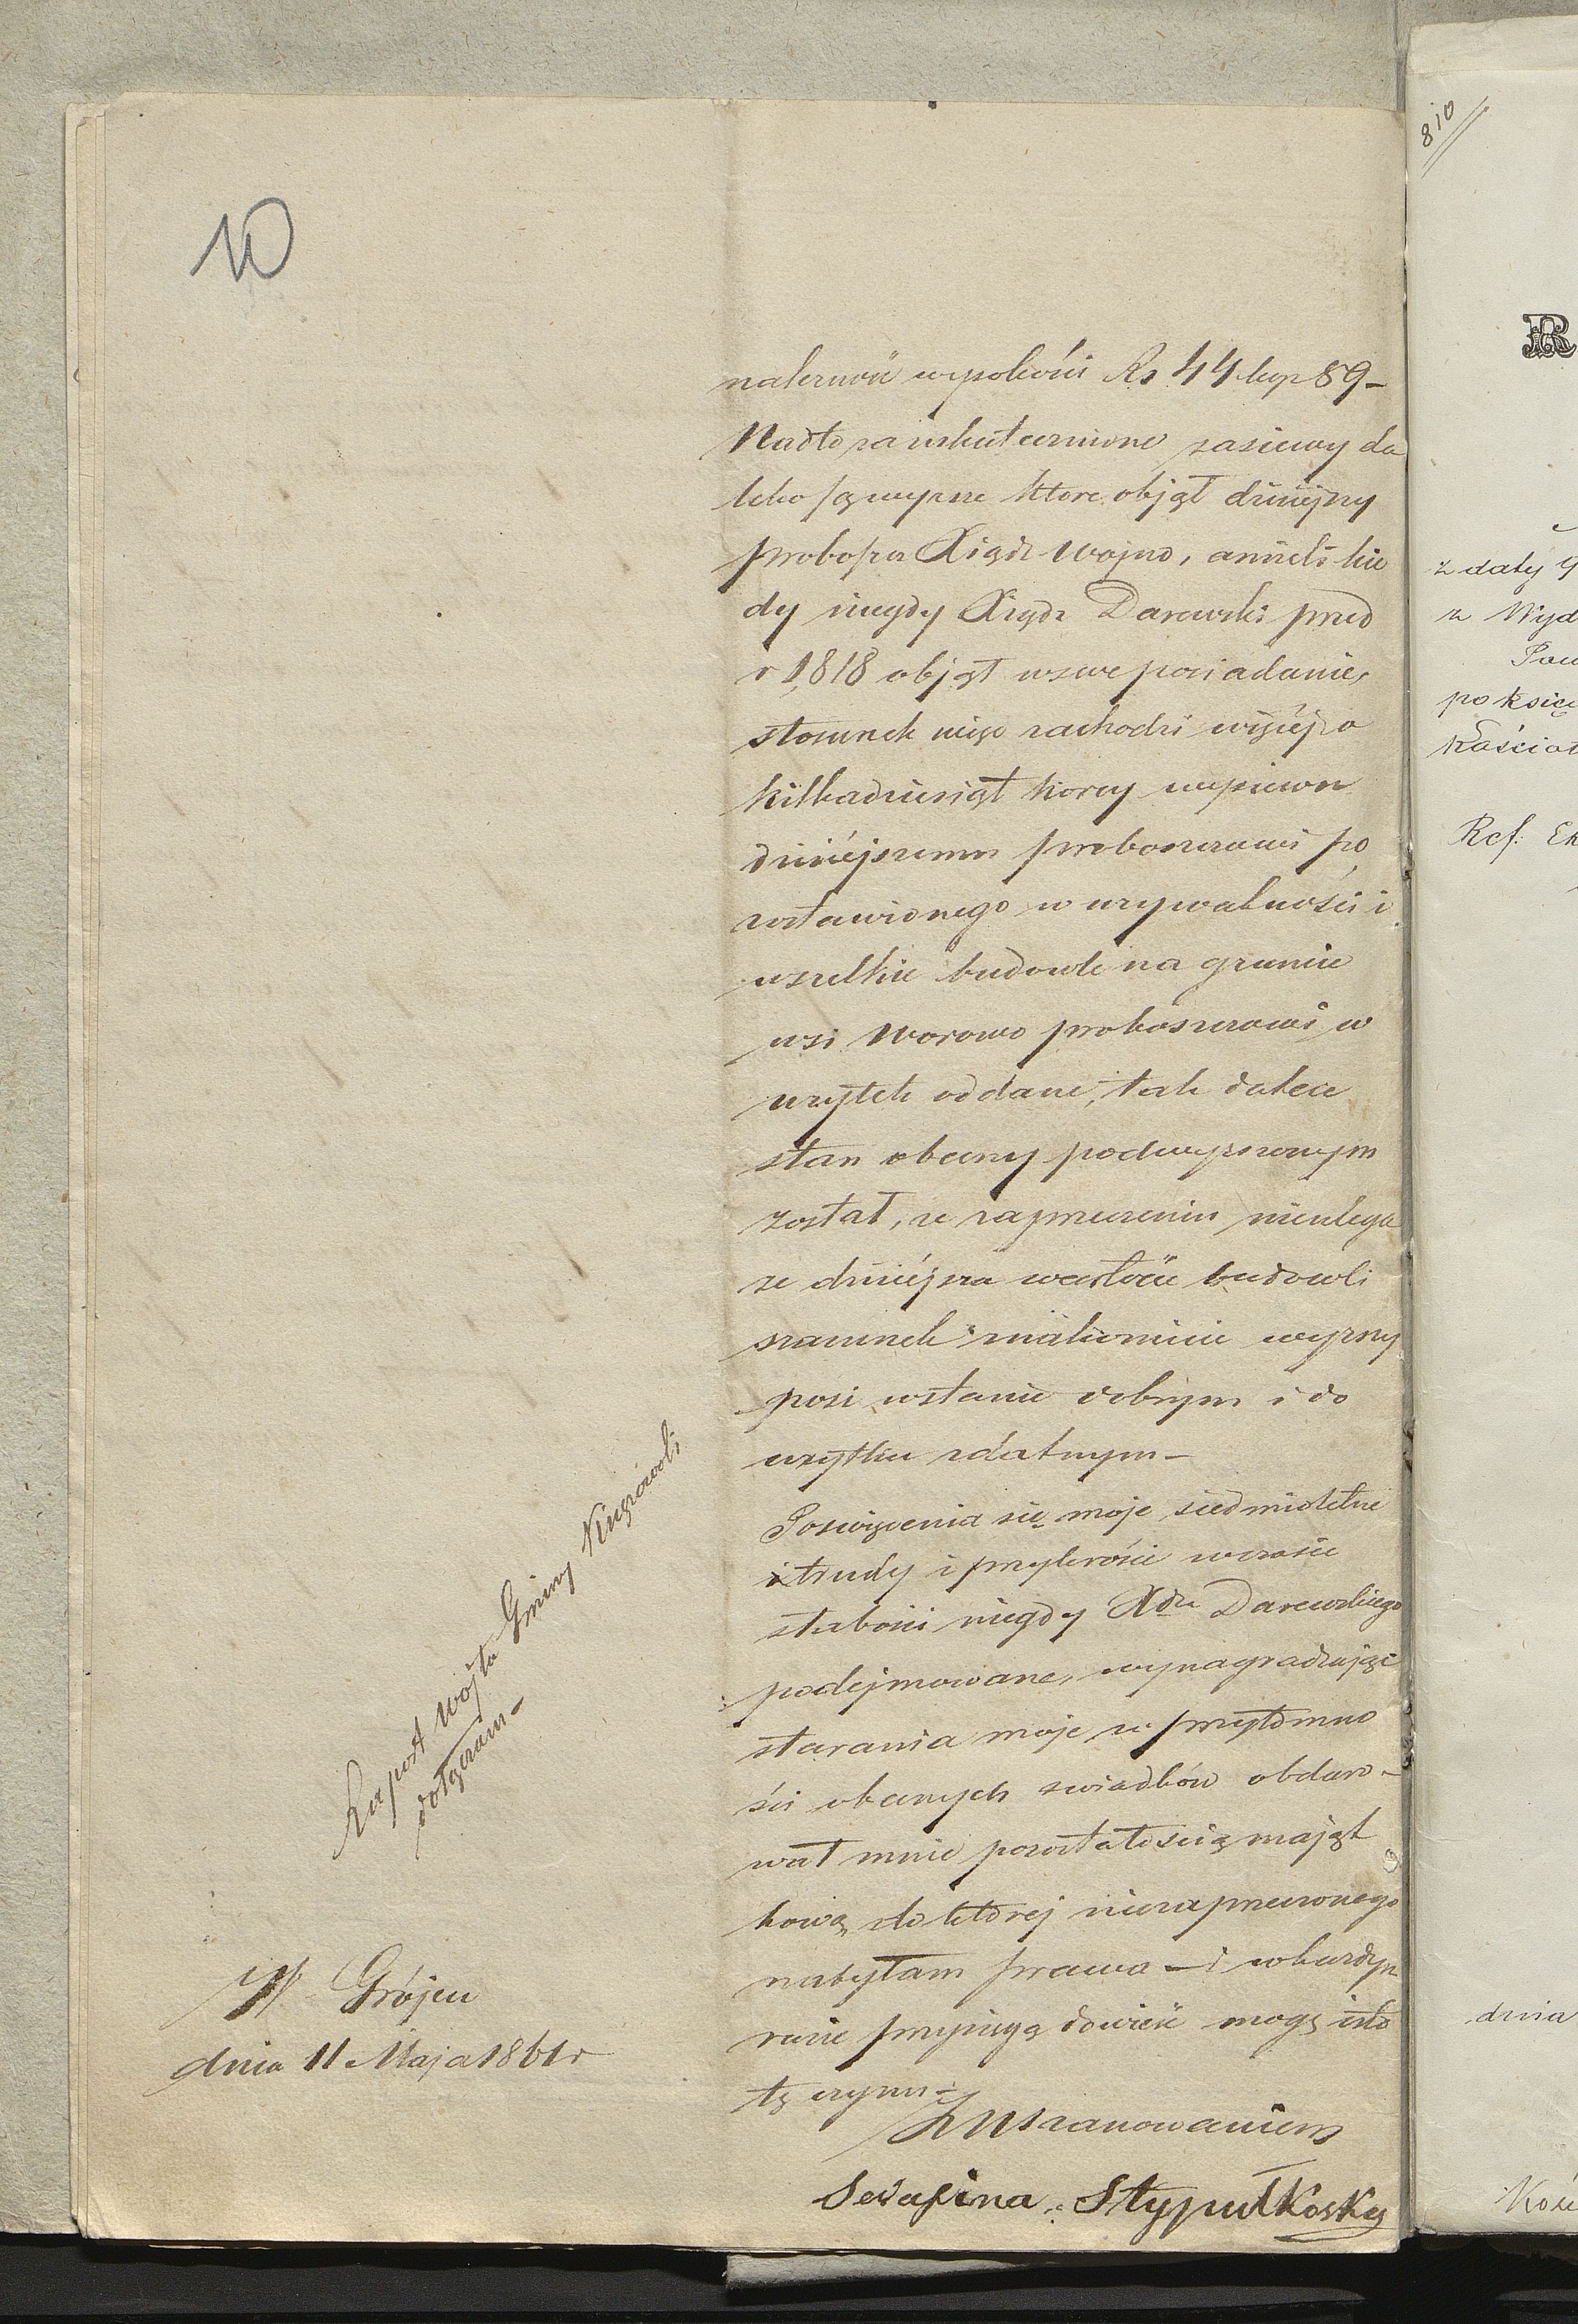 10
należność wysokości Rs 44 kop 89 –
Nadto za uskutecznione zasiewy da
leko są wyzsze ktore objął dziśiejszy
proboszcz Xiądz Wojno, anizeli kie
dy niegdy Xiądz Darewski przed
r 1818 objął wswe posiadanie,
stosunek więc zachodzi więcéj o
kilkadziesiąt korcy wysiewu
dziśiéjszemu proboszczowi po
zostawionego w uzywalności i
wszelkie budowle na gruncie
wsi Worowo proboszczowi w
uzytek oddane, tak dalece
stan obecny podwyzszonym
został, ze zaprzeczeniu nieulega
ze dziśiéjsza wartość budowli
szacunek znakomicie wyzszy
posi wstanie dobrym i do
uzytku zdatnym –
Poswięcenia się moje siedmioletnie
i trudy i przykrości wczasie
słabości niegdy Xdza Darewskiego
podejmowane, wynagradzając
starania moje w przytomno
ści obecnych swiadków obdaro–
wał mnie pozostałością mająt
kową do któréj niezaprzeczonego
nabyłam prawa – i wkazdym
razie przysięgą dowieść mogę i sto
tę czynu –
Z Uszanowaniem
Serafina Stypułkoska
Raport Wójta Gminy
dołączam –
W Grójcu
dnia 11 Maja 1861 r
810
R
z daty 9
z Wyd
Pow
po księ
Kościoł
Ref: Ek
dnia